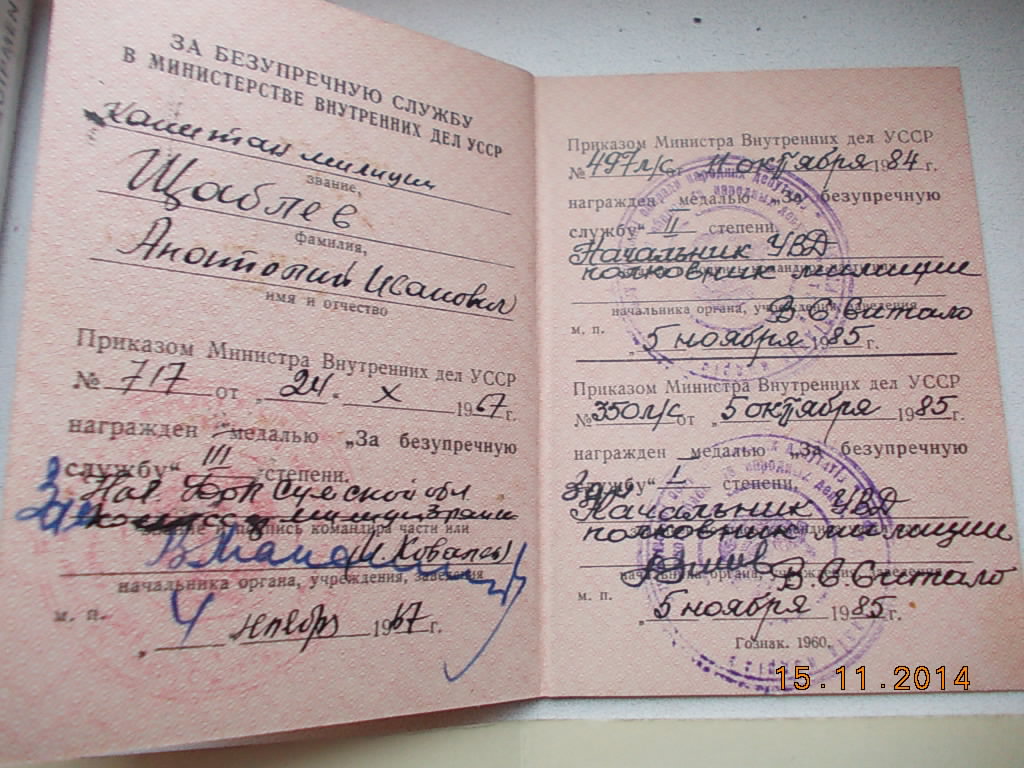 ЗА БЕЗУПРЕЧНУЮ СЛУЖБУ
В МИНИСТЕРСТВЕ ВНУТРЕННИХ ДЕЛ УССР
капитан милиции
звание,
Щаблев
фамилия,
Анатолий Иванович
имя и отчество
Приказом Министра Внутренних дел УССР
№ 717 от „24. X 1967 г.
награжден медалью „За безупречную
службу“ III степени.
Нач. Сумской обл
подпись командира части или
(Ковалев)
начальника органа, учреждения, заведения
м. п.
„4 ноября 1967 г.
Приказом Министра Внутренних дел УССР
№ 497 л/с от 11 октября 1984 г.
награжден медалью „За безупречную
службу“ II степени.
Начальник УВД
полковник милиции
начальника органа, учреждения, заведения
В.С. Ситало
м. п.
„5 ноября 1985 г.
Приказом Министра Внутренних дел УССР
№ 350 л/с от „5 октября 1985 г.
награжден медалью „За безупречную
службу“ I степени.
Начальник УВД
полковник милиции
начальника органа, учреждения, заведения
В.С. Ситало
м. п.
„5 ноября 1985 г.
Гознак. 1960.
15.11.2014